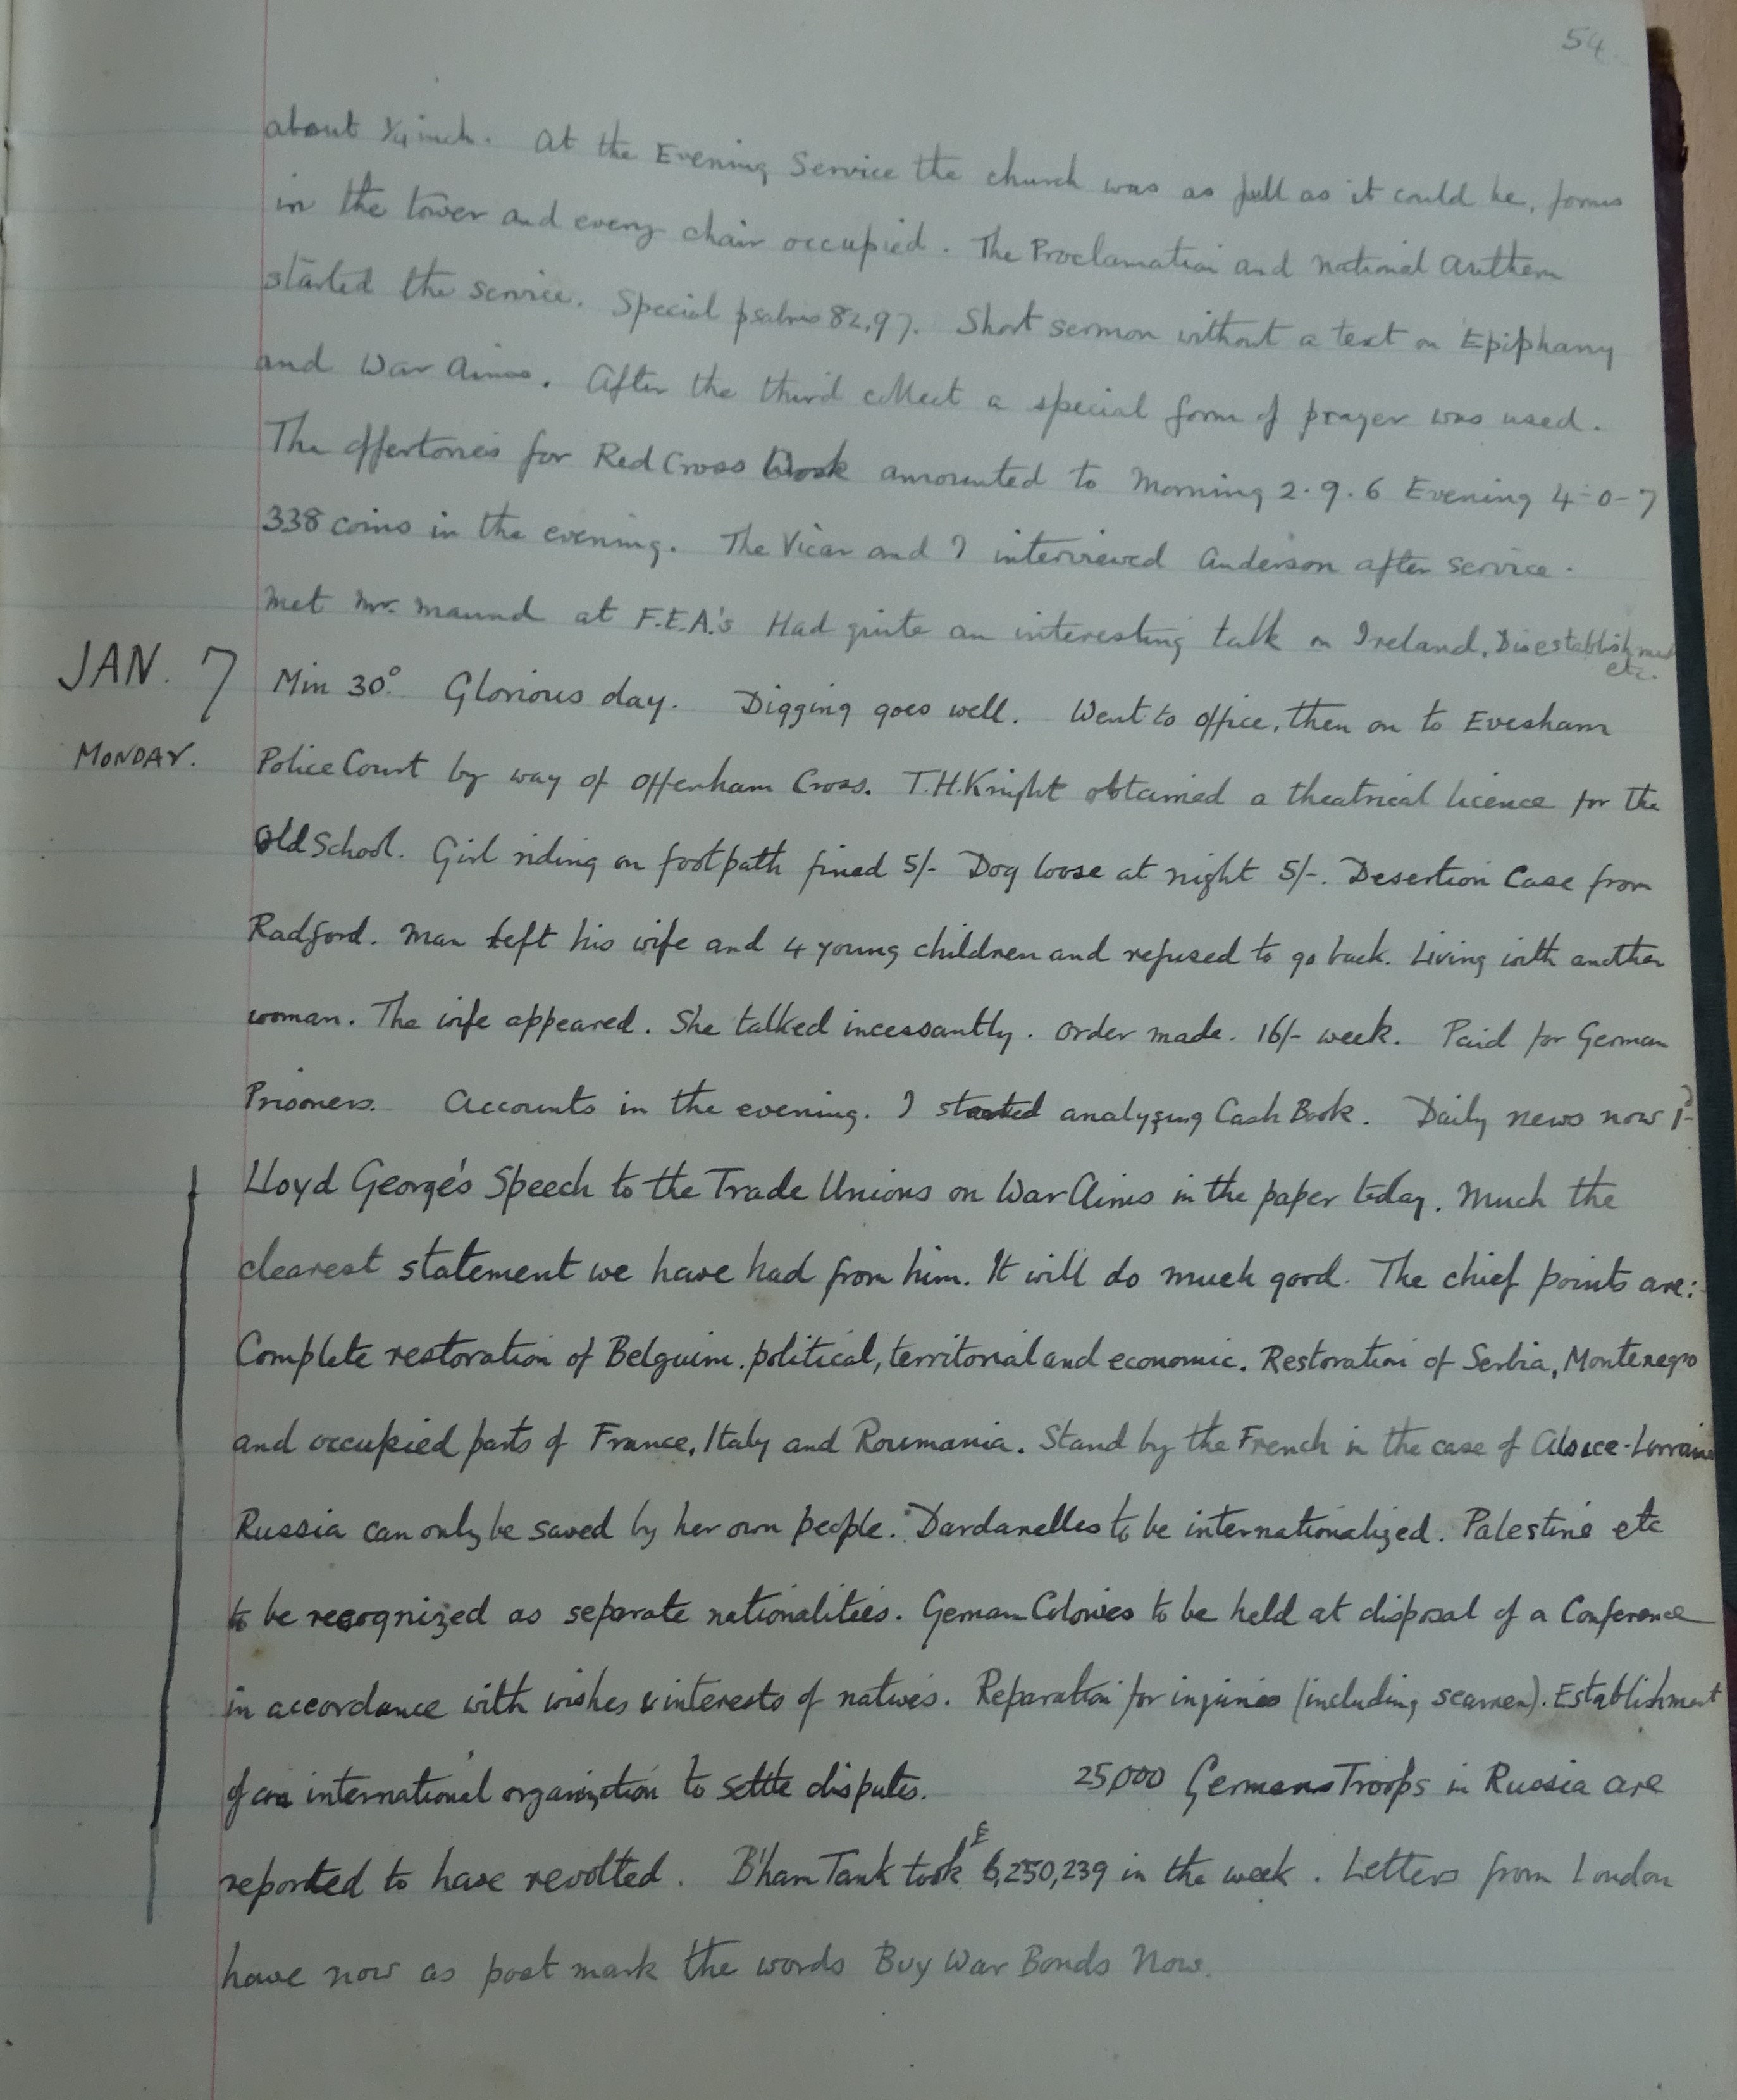 54.
about ¼ inch. At the Evening Service the church was as full as it could be, forms
in the tower and every chair occupied. The Proclamation and National Anthem
started the service. Special psalms 82, 97. Short sermon without a text on Epiphany
and War Aims. After the third collect a special form of prayer was used.
The offertories for Red Cross Work amounted to Morning 2.9.6 Evening 4-0-7
338 coins in the evening. The Vicar and I interviewed Anderson after service.
Met Mr. Maund at F.E.A.'s Had quite an interesting talk on Ireland, Disestablishment
etc.
JAN. 7 Min 30°. Glorious day. Digging goes well. Went to office, then on to Evesham
MONDAY. Police Court by way of Offenham Cross. T.H. Knight obtained a theatrical licence for the
Old School. Girl riding on footpath fined 5/- Dog loose at night 5/-. Desertion Case from
Radford. Man left his wife and 4 young children and refused to go back. Living with another
woman. The wife appeared. She talked incessantly. Order made. 16/- week. Paid for German
Prisoners. Accounts in the evening. I started analyzing Cash Book. Daily news now 1d-
Lloyd George's Speech to the Trade Unions on War Aims in the paper today. Much the
clearest statement we have had from him. It will do much good. The chief points are:-
Complete restoration of Belguim. political, territorial and economic. Restoration of Serbia, Montenegro
and occupied parts of France, Italy and Roumania. Stand by the French in the case of Alsace-Lorraine
Russia can only be saved by her own people. Dardanelles to be internationalized. Palestine etc
to be recognized as separate nationalities. German Colonies to be held at disposal of a Conference
in accordance with wishes & interests of natives. Reparation for injuries (including seamen). Establishment
of an international organization to settle disputes. 25,000 German Troops in Russia are
reported to have revolted. B'ham Tank took £6,250,239 in the week. Letters from London
have now as post mark the words Buy War Bonds Now.